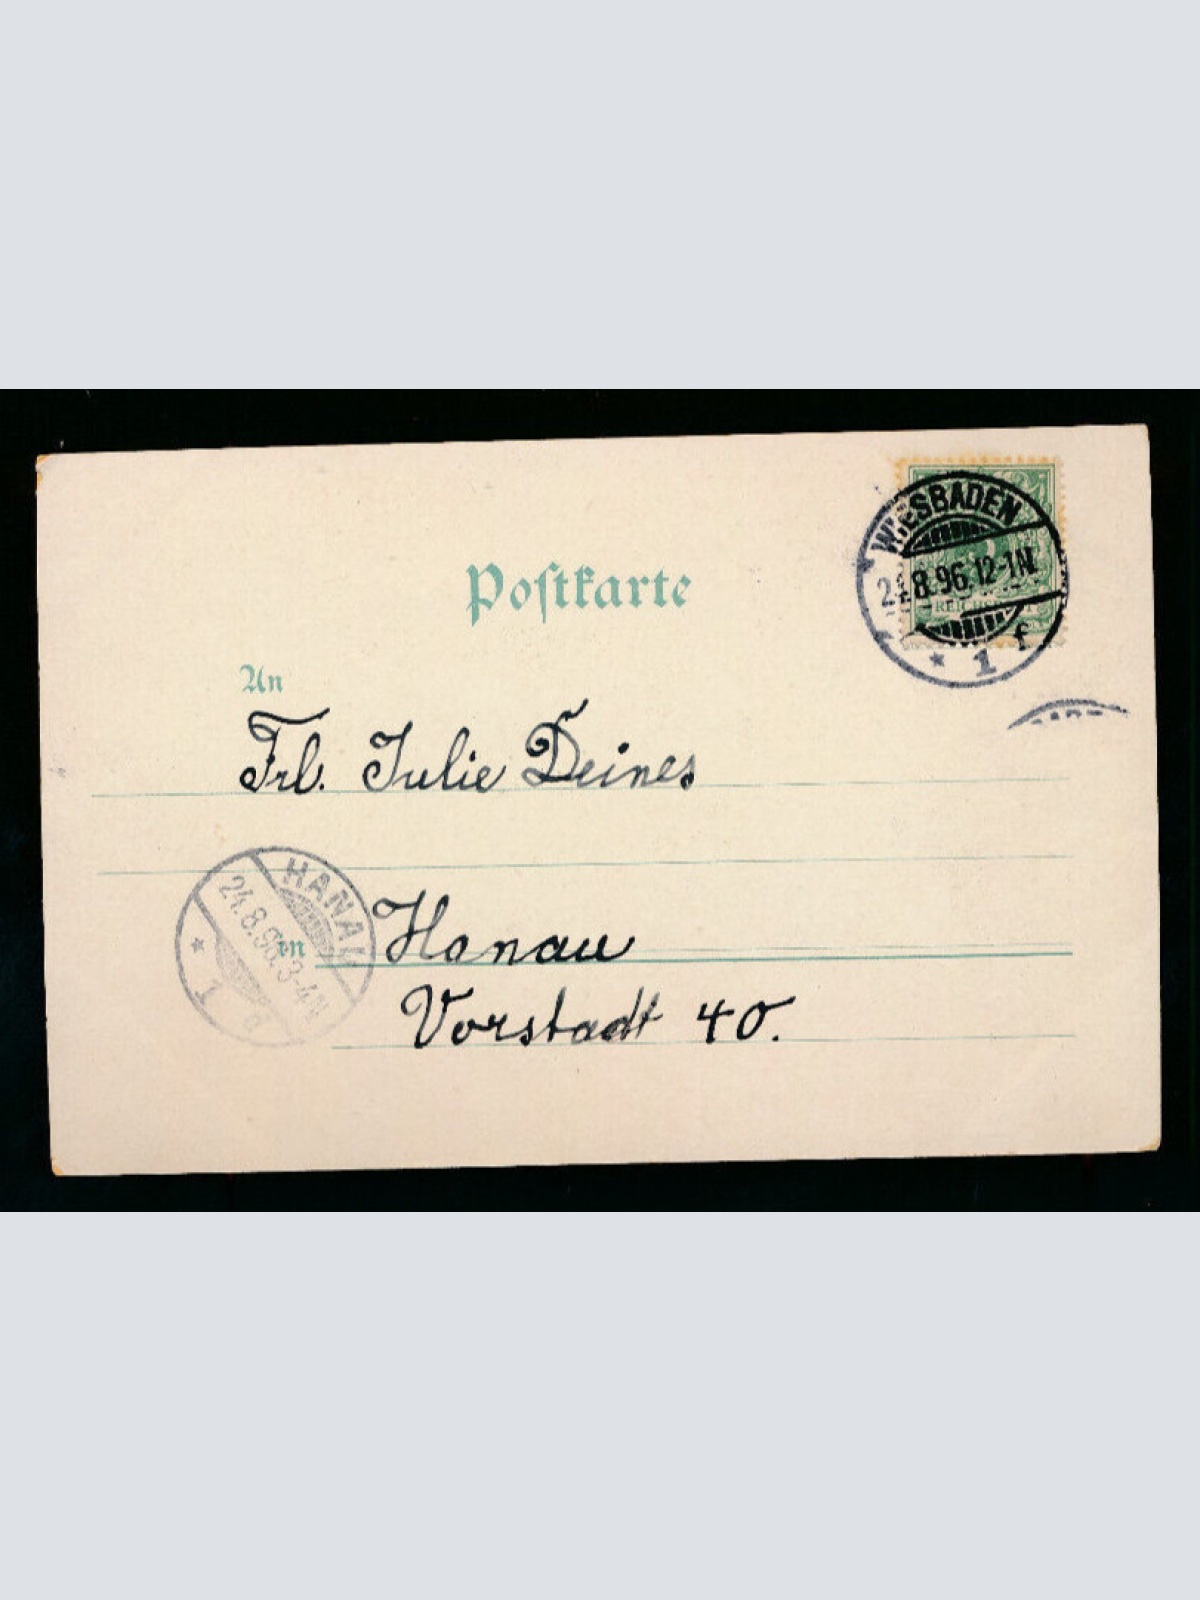 WIESBADEN
24.8.96.12-1N.
REICHSPOST
* 1 f
Postkarte
An
Frl. Julie Deines
HANAU
24.8.96.3-4N
* 1 a
in Hanau
Vorstadt 40.